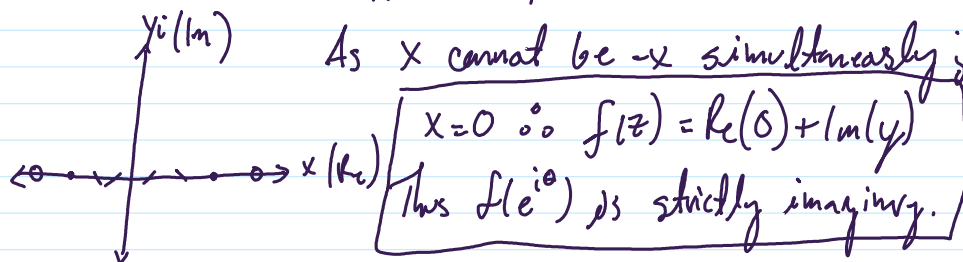 yi (Im)
As x cannot be -x simultaneasly
x=0 ∴ f(z) = Re(0) + Im(y)
x (Re)
Thus f(e^{iθ}) is strictly imaginry.